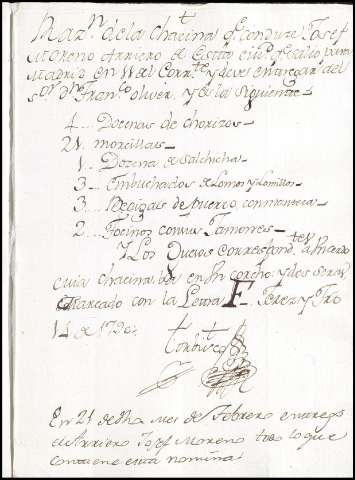 Raz.n de la chacina q.e conduze Josef
Moreno Arriero de esta ciu.d para
Madrid en 14 del Corr.te y deve entregar al
S.or D.n Fran.co oliver. y es la siguiente
4 Dozenas de chorizos
21 morcillas
1 Dozena de salchicha
3 Embuchados de Lomos y Lomillos
3 Begigas de Puerco con manteca
2 Tocinos con sus Jamones
Y Los correspond.tes
cuia chacina va en un corcho y
marcado con la Letra F
14 de 1790
En 21 de dho mes de Febrero entrego
el Arriero Josef Moreno todo lo que
contiene esta nomina